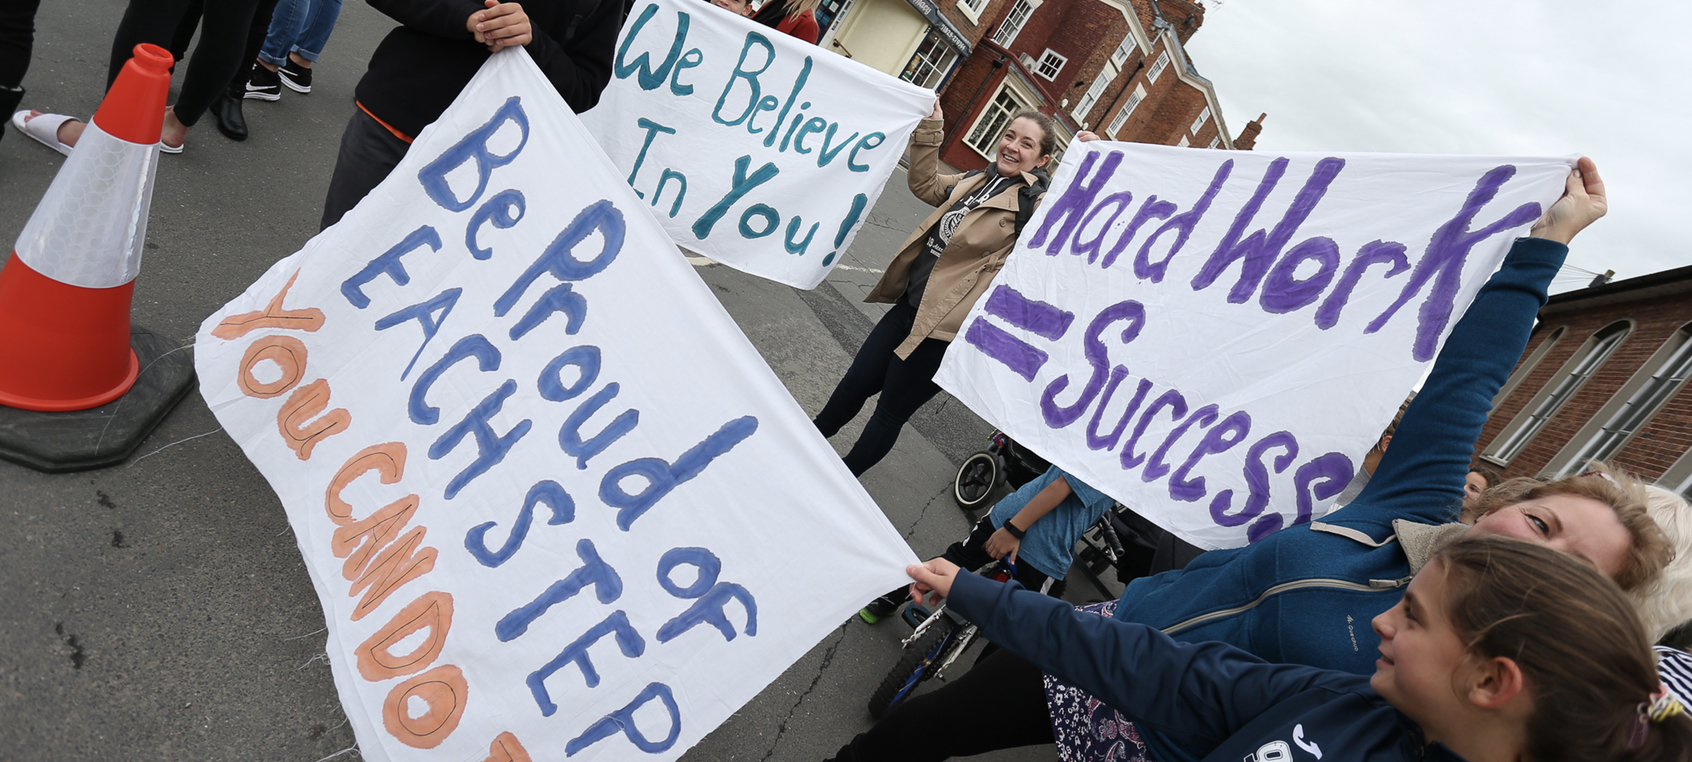 We Believe
In You!
Hard Work
= Success
Be Proud of
EACH STEP
You CAN DO